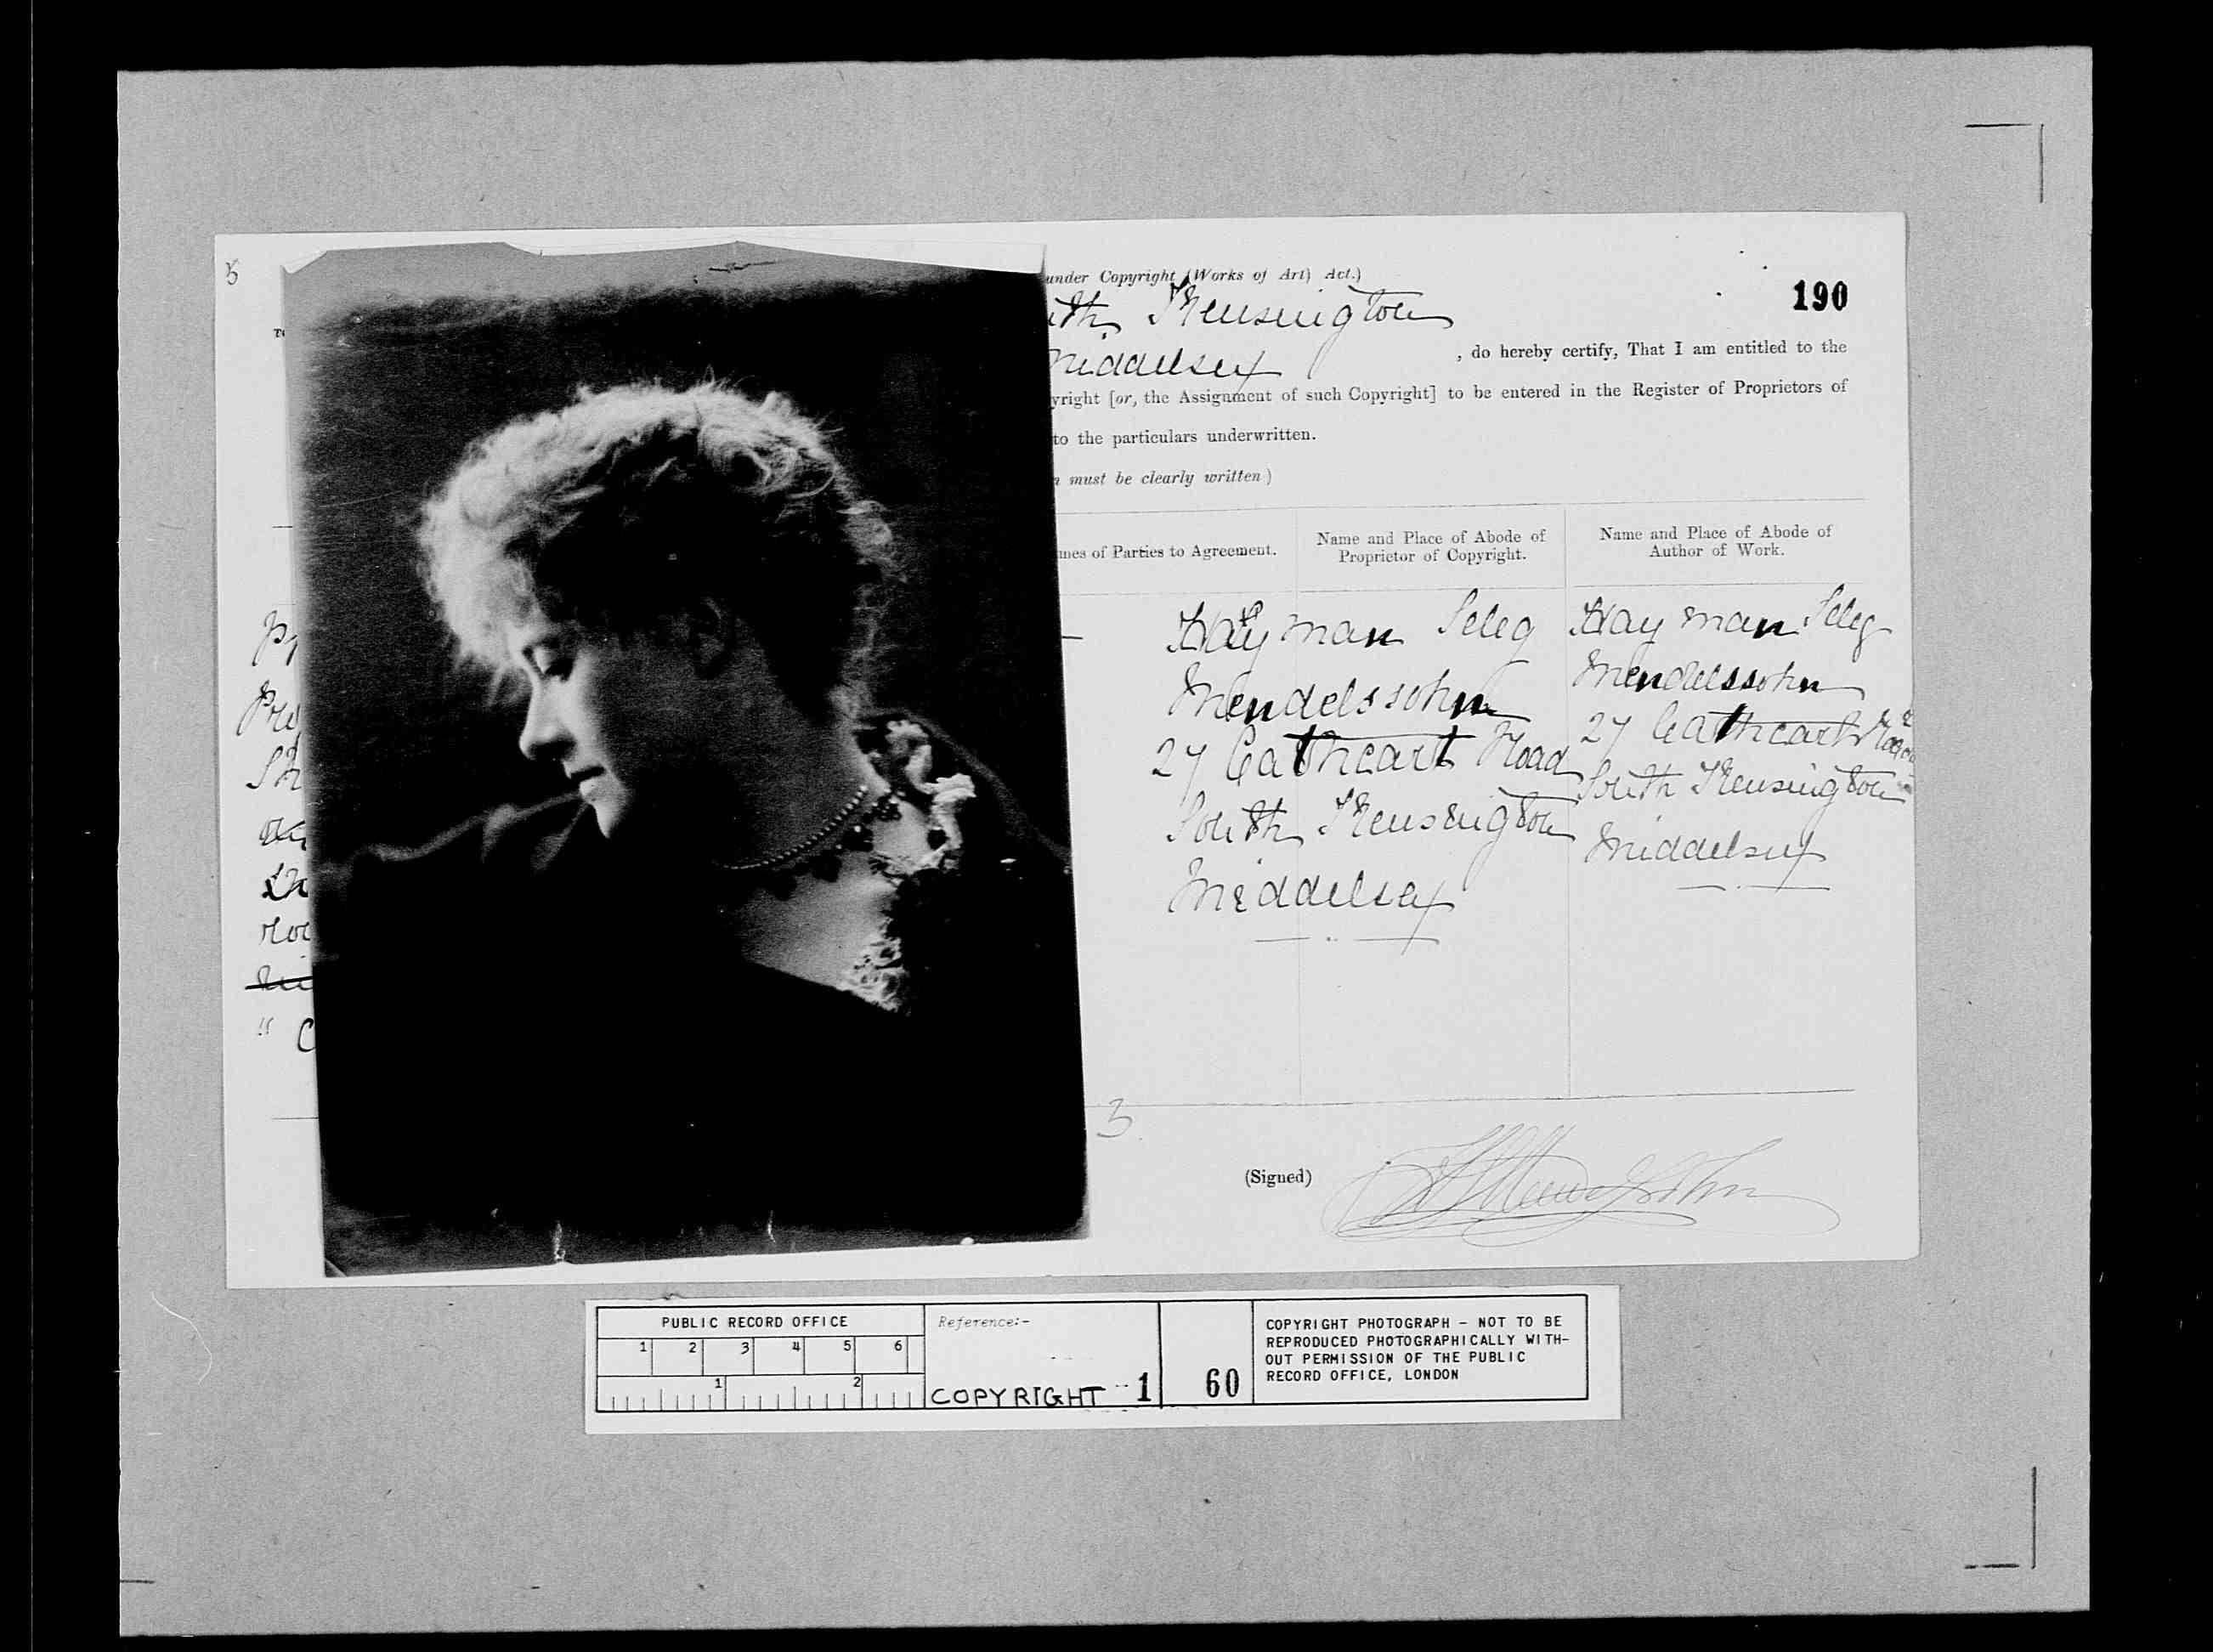 under Copyright (Works of Art) Act.)
190
Kensington
Middelsex
, do hereby certify, That I am entitled to the
yright [or, the Assignment of such Copyright] to be entered in the Register of Proprietors of
to the particulars underwritten.
must be clearly written)
mes of Parties to Agreement.
Name and Place of Abode of
Proprietor of Copyright.
Name and Place of Abode of
Author of Work.
Hayman Seleg
Mendelssohn
27 Cathcart Road
South Kensington
Middelsex
Hayman Seleg
Mendelssohn
27 Cathcart Road
South Kensington
Middelsex
3
(Signed)
PUBLIC RECORD OFFICE
1 2 3 4 5 6
1 2
Reference:-
COPYRIGHT 1
60
COPYRIGHT PHOTOGRAPH - NOT TO BE
REPRODUCED PHOTOGRAPHICALLY WITH-
OUT PERMISSION OF THE PUBLIC
RECORD OFFICE, LONDON